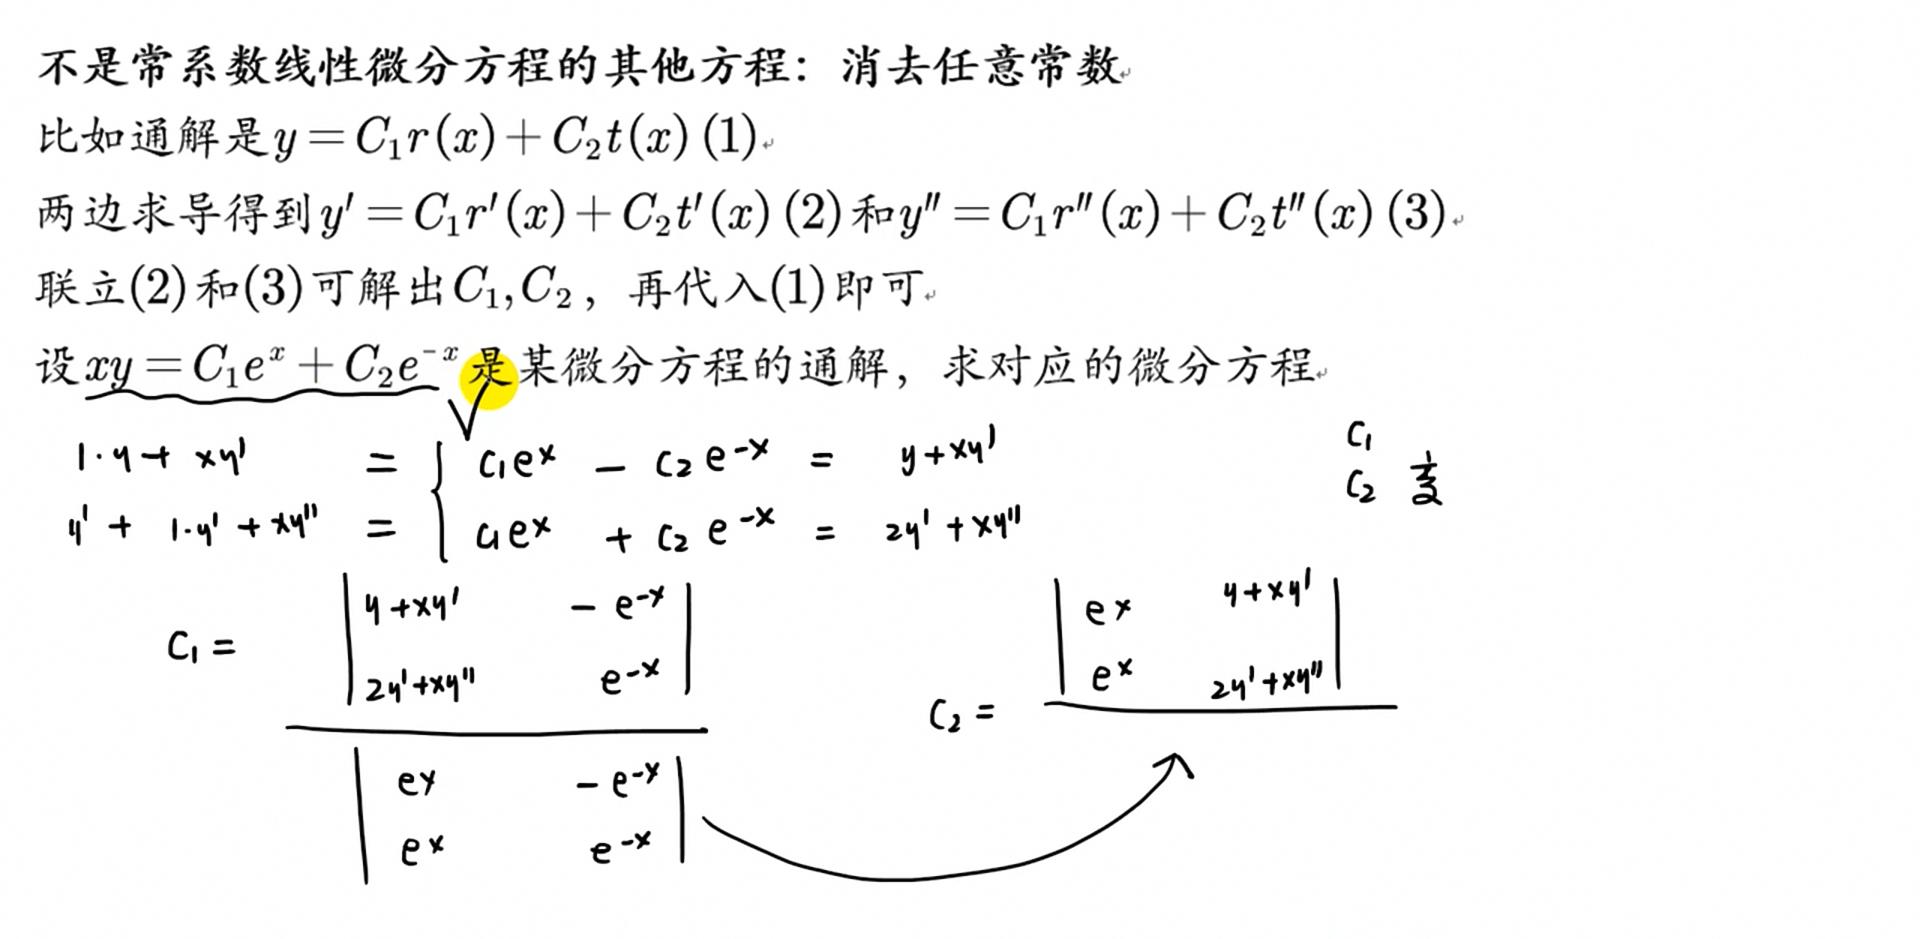 不是常系数线性微分方程的其他方程：消去任意常数
比如通解是y=C₁r(x)+C₂t(x) (1)
两边求导得到y′=C₁r′(x)+C₂t′(x) (2)和y″=C₁r″(x)+C₂t″(x) (3)
联立(2)和(3)可解出C₁,C₂，再代入(1)即可
设xy=C₁eˣ+C₂e⁻ˣ是某微分方程的通解，求对应的微分方程
1·y+xy′ = { C₁eˣ − C₂e⁻ˣ = y+xy′
y′+1·y′+xy″ = C₁eˣ + C₂e⁻ˣ = 2y′+xy″
C₁
C₂
C₁=
|y+xy′ −e⁻ˣ|
|2y′+xy″ e⁻ˣ|
|eˣ −e⁻ˣ|
|eˣ e⁻ˣ|
C₂=
|eˣ y+xy′|
|eˣ 2y′+xy″|